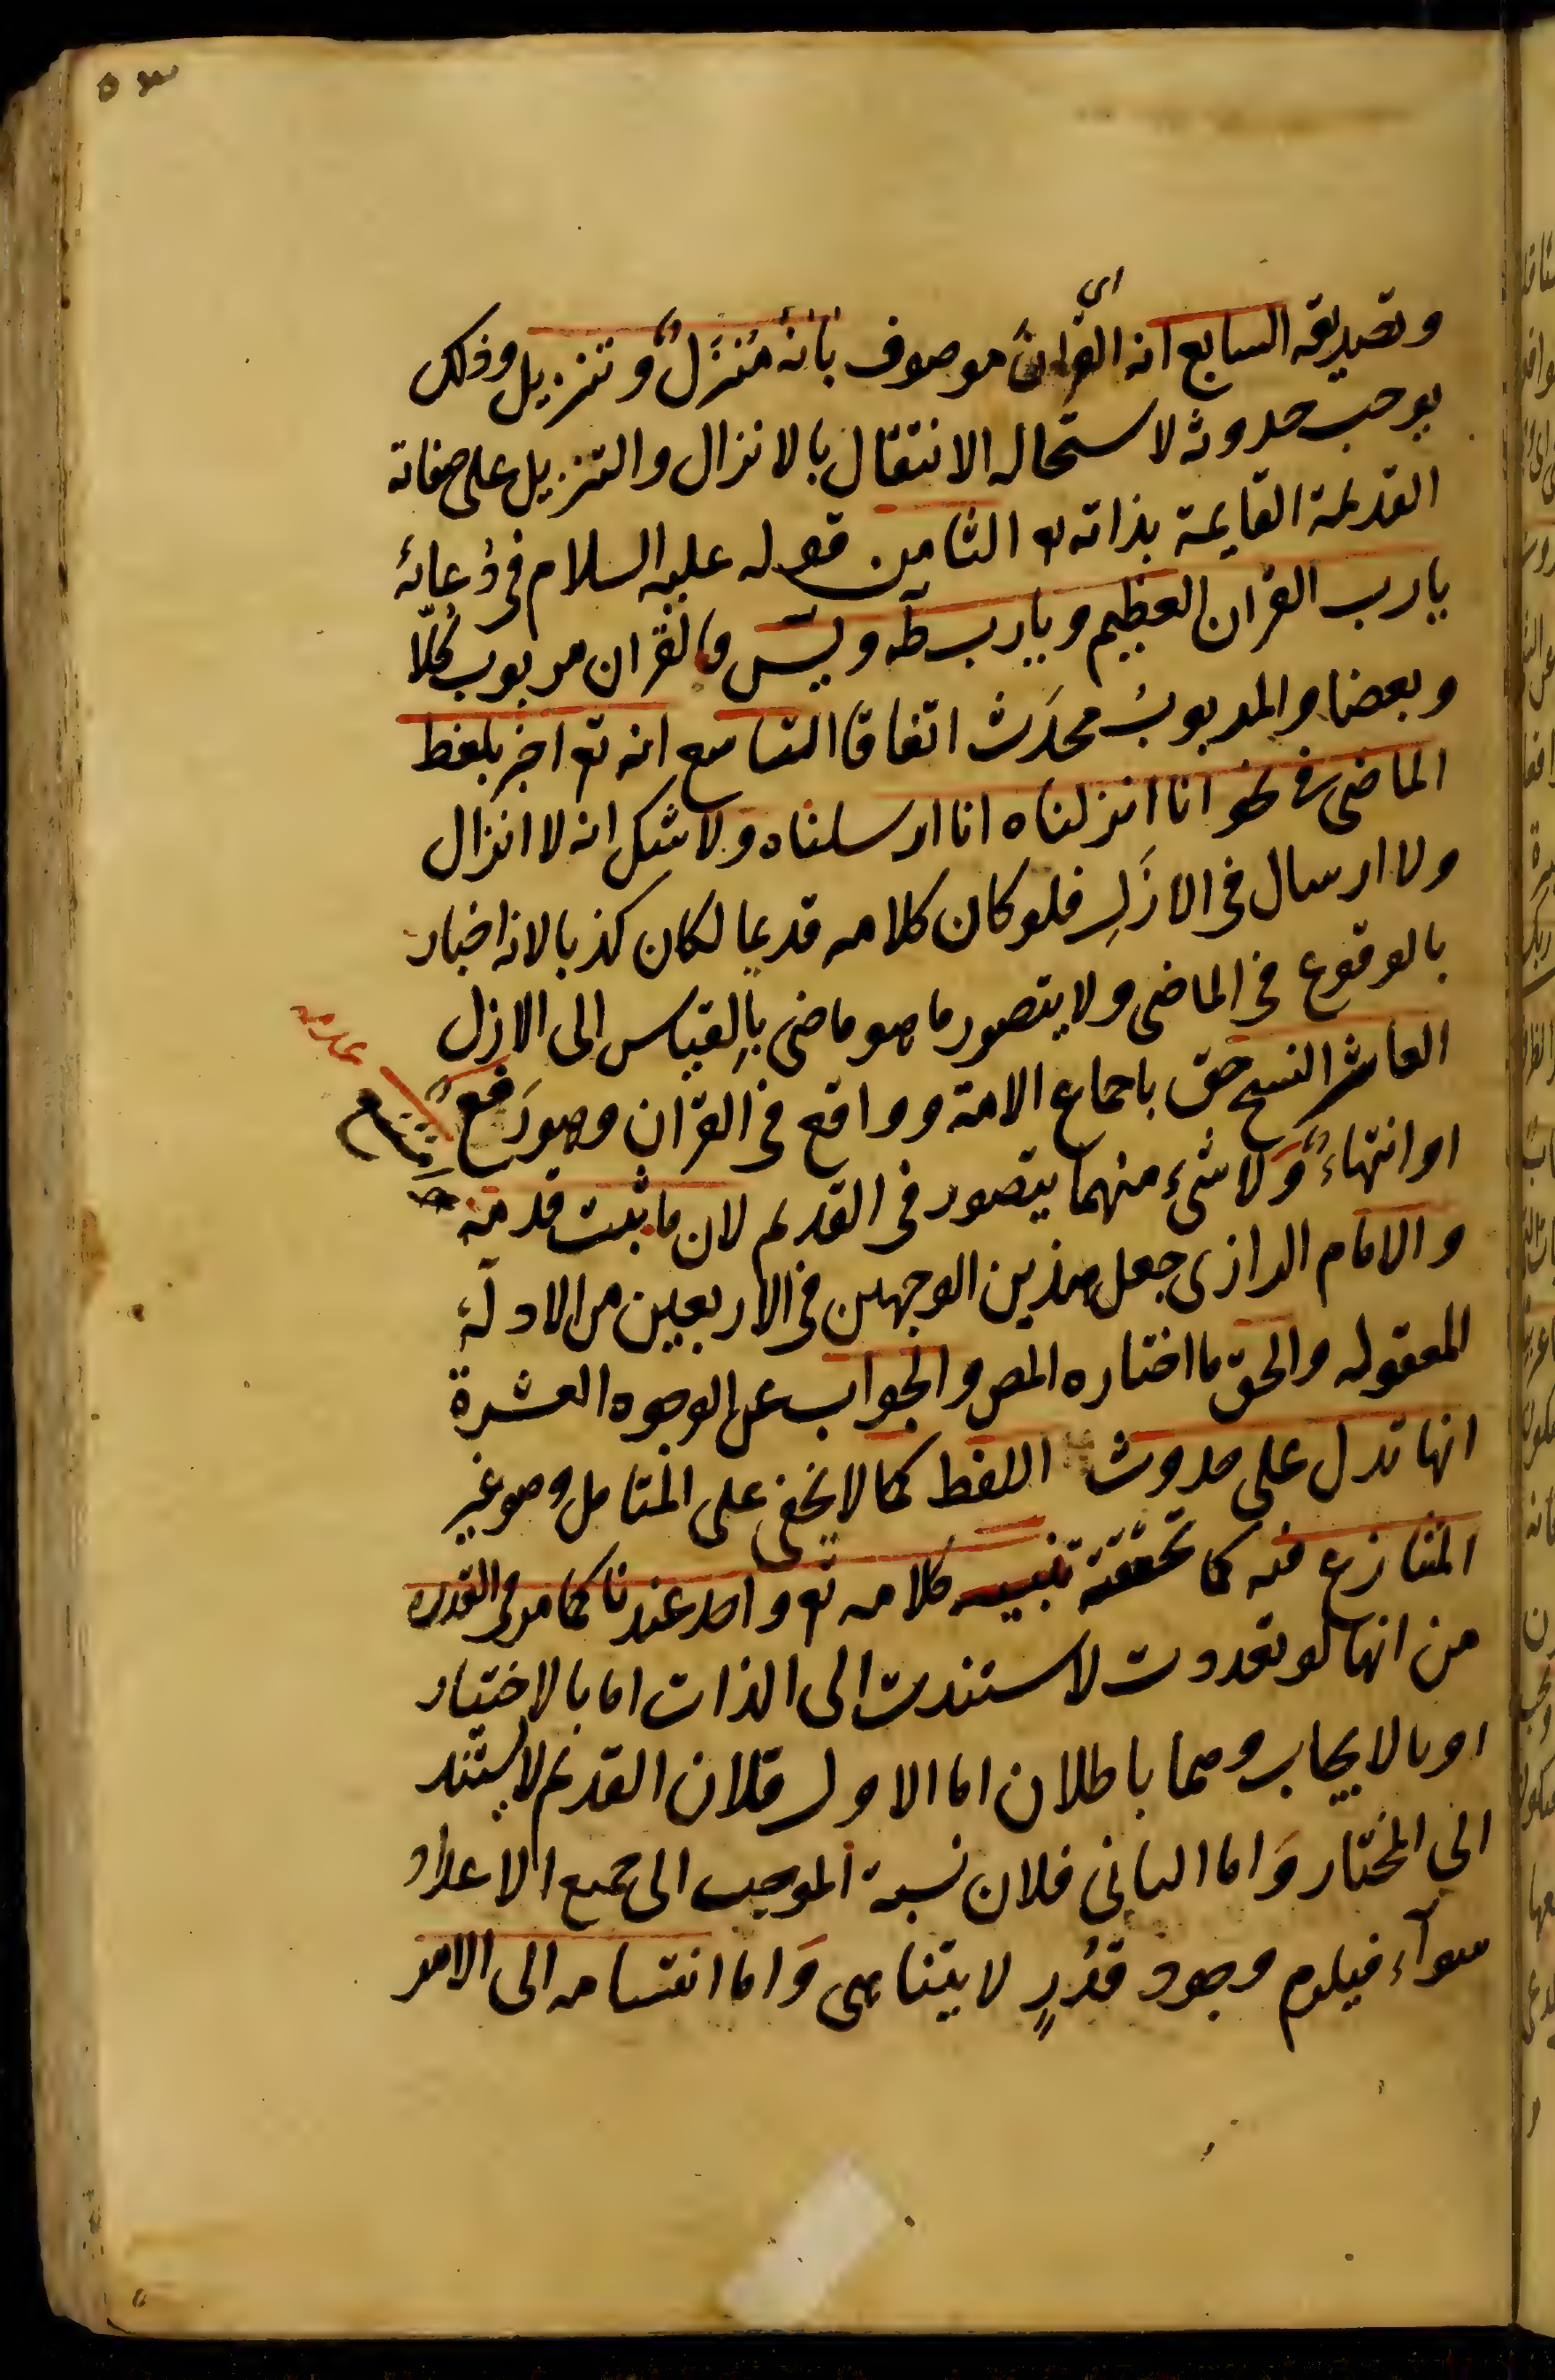 ٥٣
اى
وتصديقه السابع انه القرانُ موصوف بانهُ مُنَزَّلٌ وتنزيل وذلك
يوجب حدوثه لاستحاله الانتقال بالانزال والتنزيل على صفاته
القديمة القايمة بذاته تع الثامن قوله عليه السلام فى دُعائهٔ
يا رب القران العظيم ويا رب طٓه ويٓس والقران مربوب كُلّا
وبعضا والمربوبُ محدَث اتفاقا التاسع انه تع اخبر بلفظ
الماضى فى نحو انا انزلناه انا ارسلناه ولا شك انه لا انزال
ولا ارسال فى الازَلِ فلو كان كلامه قديما لكان كذبا لانه اخبار
بالوقوع فى الماضى ولا يتصور ما هو ماضى بِالقياس الى الازل
العاشر النسخ حق باجماع الامة وواقع فى القرآن وهو رَفعٌ
او انتهاءٌ وَلا شىء منهما يتصور فى القديم لان ما ثبت قدمه
امتنع
عدمه
صح
والامام الرازى جعل هذين الوجهين فى الاربعين من الادلّهٔ
المعقوله والحقّ ما اختاره المص والجواب عن الوجوه العشرة
انها تدل على حدوث اللفظ كما لا يخفى على المتامل وهو غير
المتنازع فيه كما تحققته تنبيه كلامه تع واحد عندنا كما مر فى القدره
من انها لو تعددت لاستندت الى الذات اما بالاختيار
او بالايجاب وهما باطلان اما الاول فلان القديم لا يستند
الى المختار وَاما الثانى فلان نسبة الموجب الى جميع الاعداد
سوآء فيلزم وجود قدُرٍ لا يتناهى وَاما انقسامه الى الامر